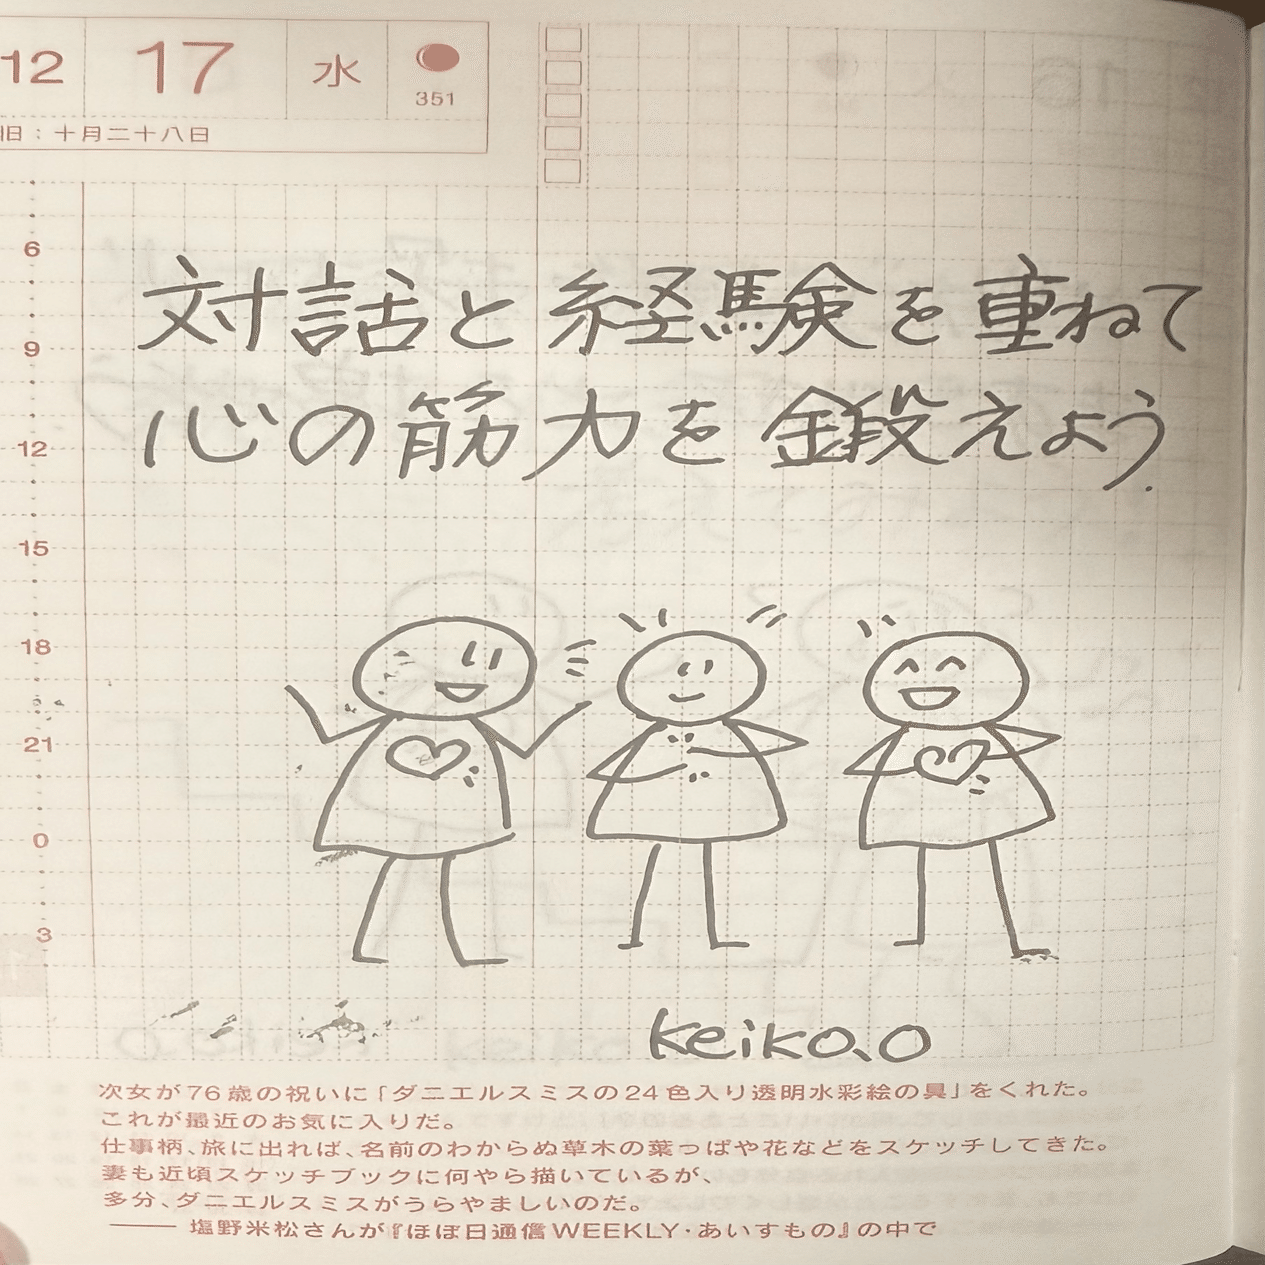 12 17 水
351
旧：十月二十八日
6
対話と経験を重ねて
9
心の筋力を鍛えよう.
12
15
18
21
0
3
keiko.o
次女が76歳の祝いに「ダニエルスミスの24色入り透明水彩絵の具」をくれた。
これが最近のお気に入りだ。
仕事柄、旅に出れば、名前のわからぬ草木の葉っぱや花などをスケッチしてきた。
妻も近頃スケッチブックに何やら描いているが、
多分、ダニエルスミスがうらやましいのだ。
── 塩野米松さんが『ほぼ日通信WEEKLY・あいすもの』の中で